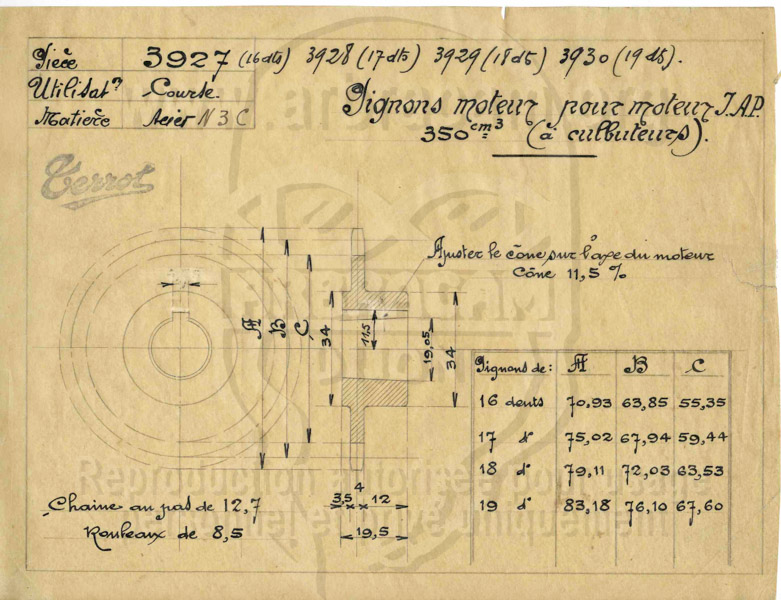 Pièce 3927 (16 dts) 3928 (17 dts) 3929 (18 dts) 3930 (19 dts).
Utilisat? Course.
Matière Acier N 3 C
Pignons moteur pour moteur J.A.P.
350 cm3 (à culbuteurs).
Terrot
Ajuster le cône sur l'axe du moteur
Cône 11,5 %
A B C 34 11,5 19,05 34
Pignons de: A B C
16 dents 70,93 63,85 55,35
17 d° 75,02 67,94 59,44
18 d° 79,11 72,03 63,53
19 d° 83,18 76,10 67,60
4
3,5 12
19,5
Chaine au pas de 12,7
Rouleaux de 8,5
Reproduction autorisée
uniquement